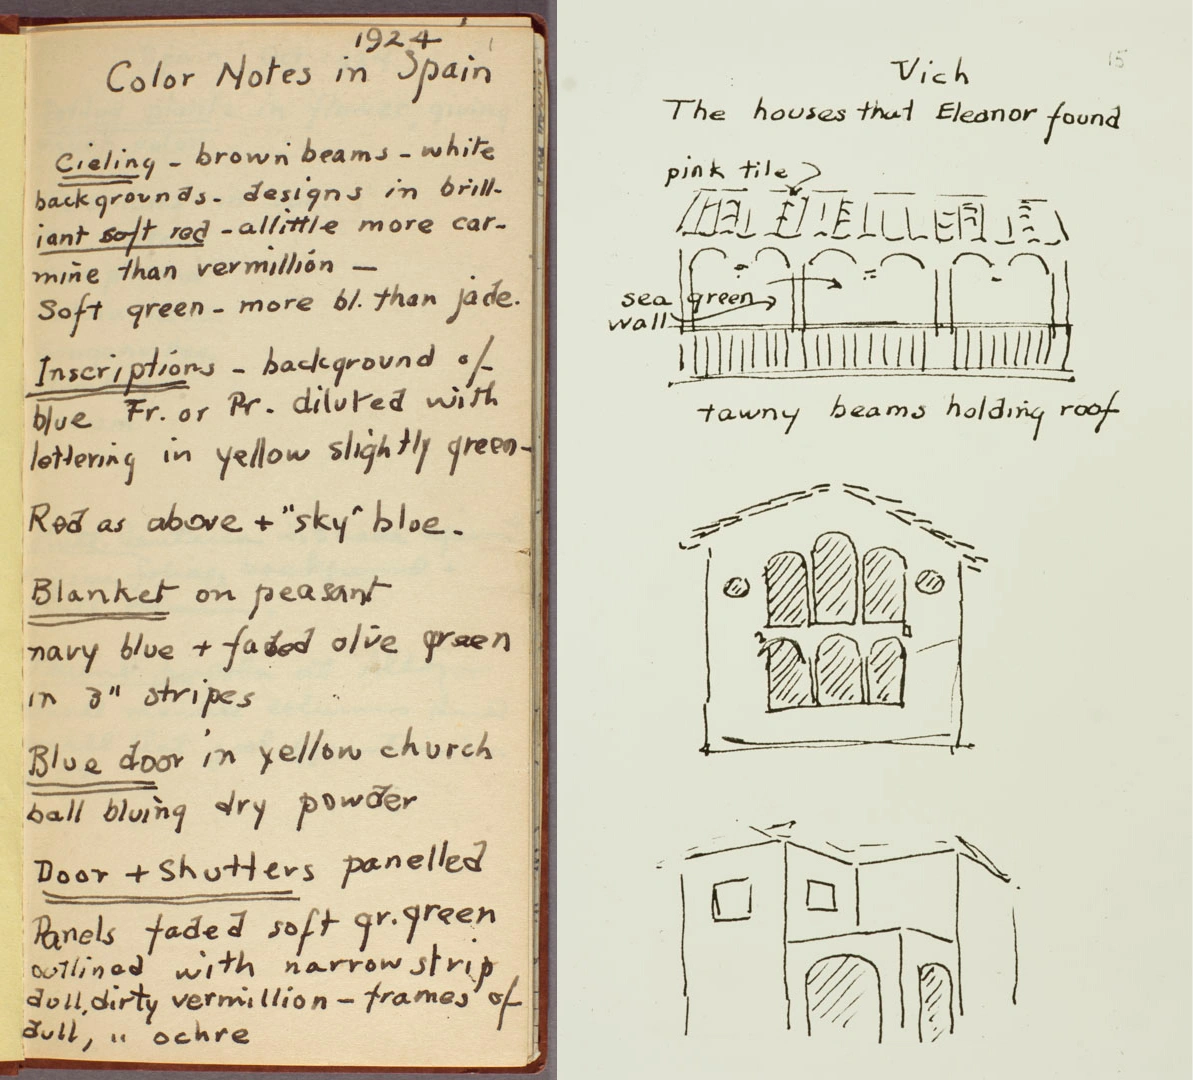 1924
1
Color Notes in Spain
Cieling - brown beams - white
backgrounds. designs in brill-
iant soft red - allittle more car-
mine than vermillion —
Soft green - more bl. than jade.
Inscriptions - background of
blue Fr. or Pr. diluted with
lettering in yellow slightly green-
Red as above + "sky" blue.
Blanket on peasant
navy blue + faded olive green
in 3" stripes
Blue door in yellow church
ball bluing dry powder
Door + Shutters panelled
Panels faded soft gr. green
outlined with narrow strip
dull, dirty vermillion - frames of
dull, " ochre
15
Vich
The houses that Eleanor found
pink tile
sea green
wall
tawny beams holding roof